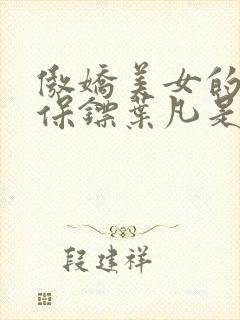 傲娇美女的
保镖葉凡是
段建祥